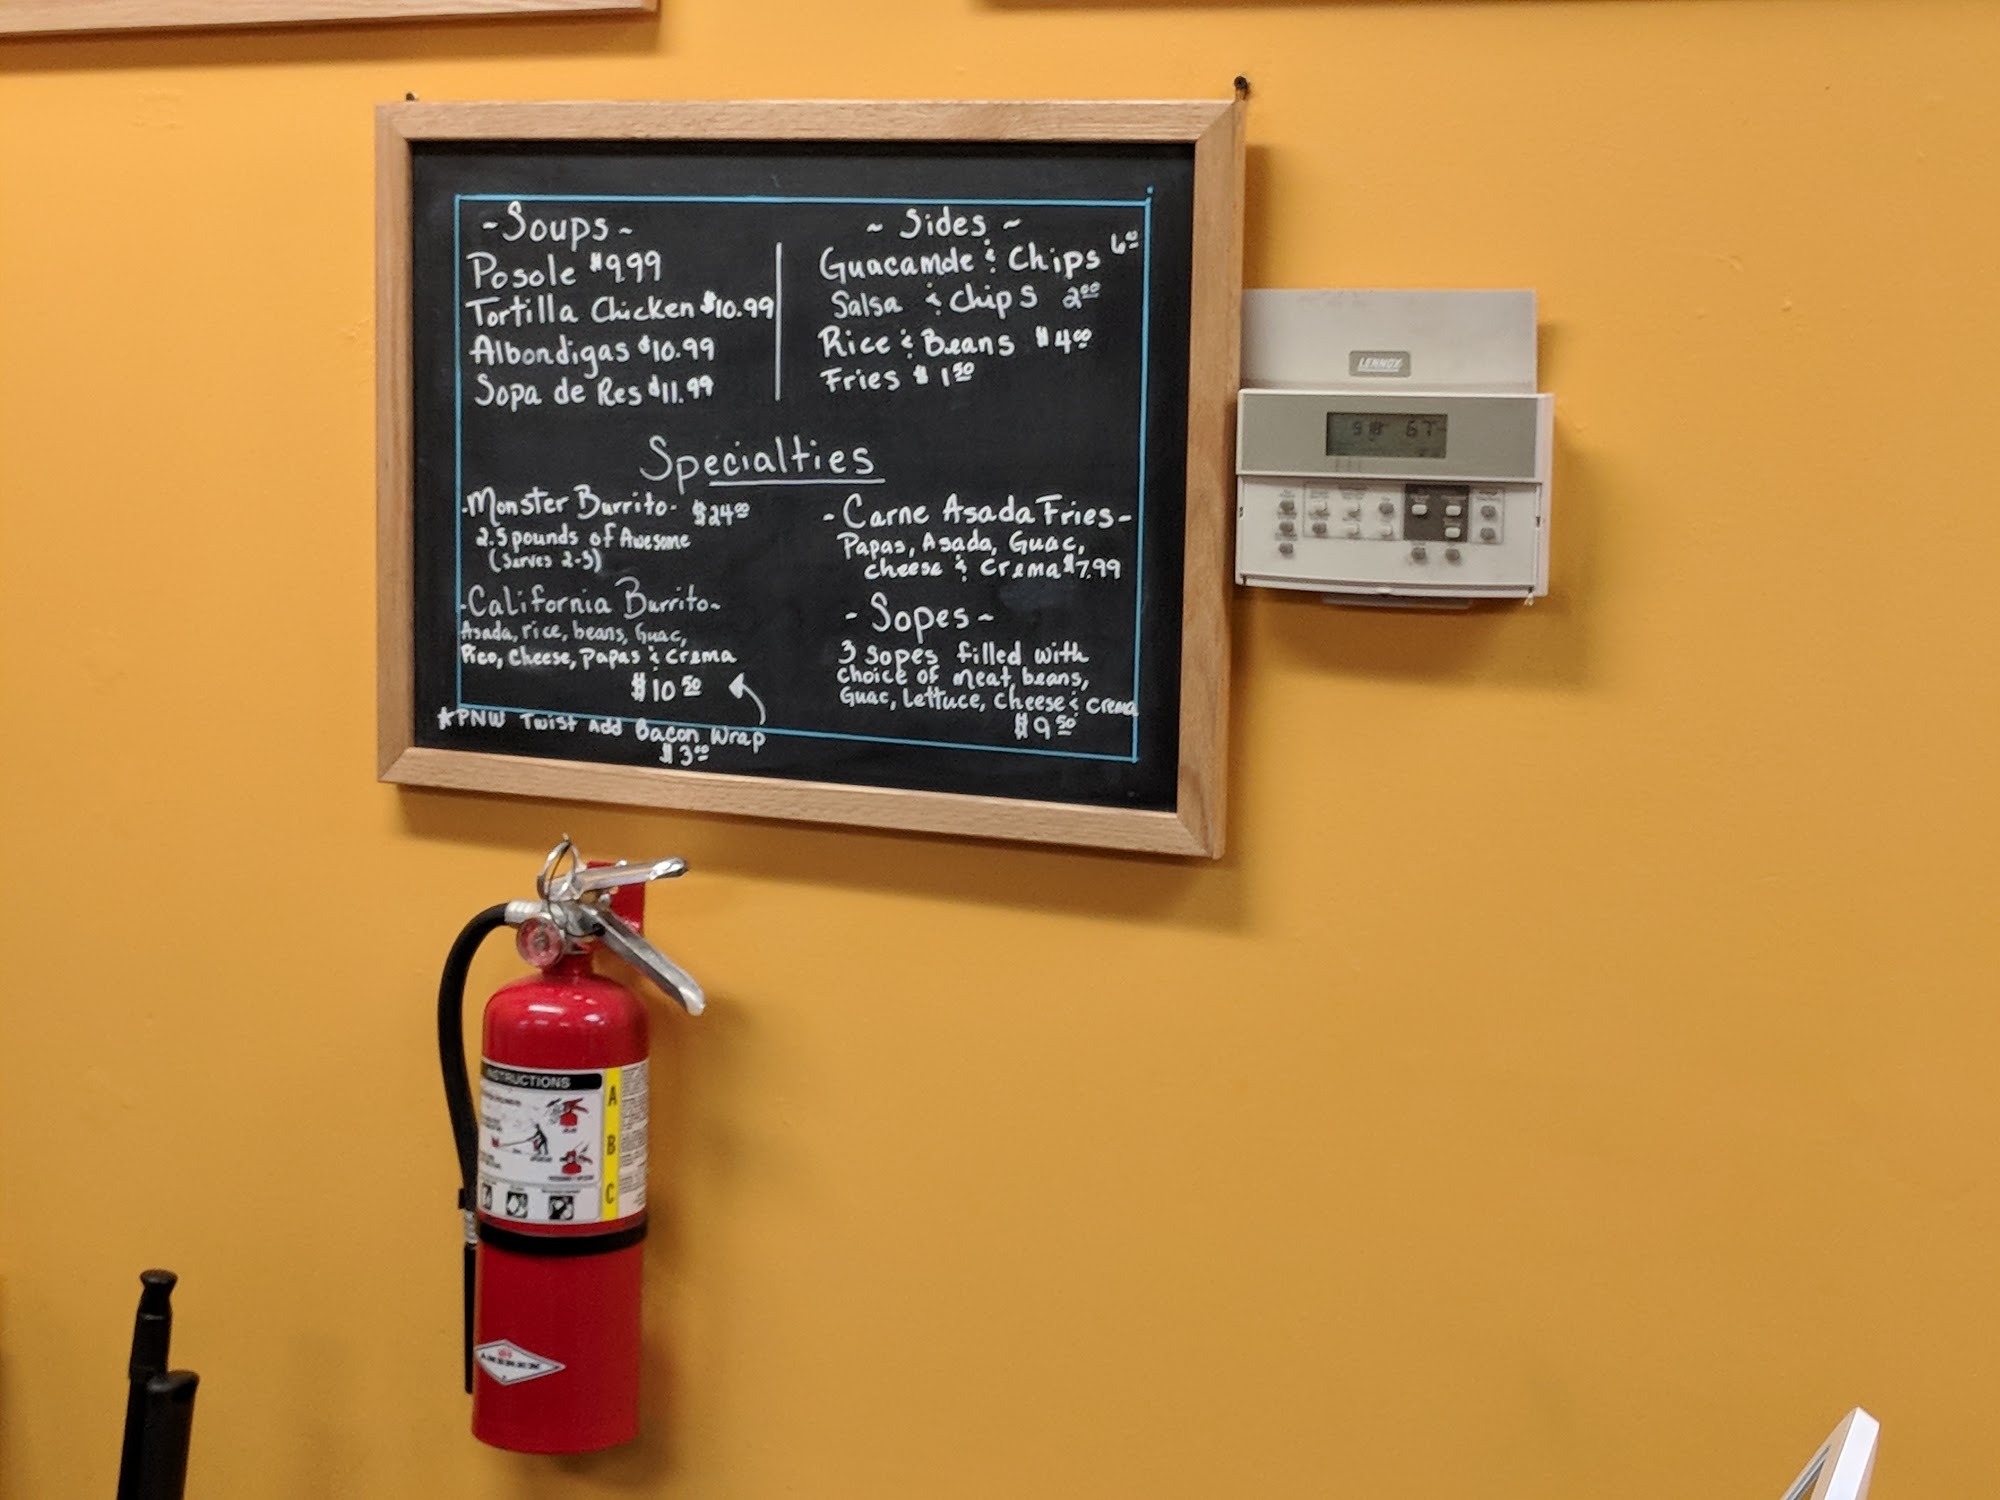 -Soups-
Posole $9.99
Tortilla Chicken $10.99
Albondigas $10.99
Sopa de Res $11.99
~ Sides ~
Guacamole & Chips 6.00
Salsa & Chips 2.00
Rice & Beans $4.00
Fries $1.50
Specialties
-Monster Burrito- $24.00
2.5 pounds of Awesome
(Serves 2-3)
-California Burrito-
Asada, rice, beans, Guac,
Pico, Cheese, Papas & Crema
$10.50
*PNW Twist Add Bacon Wrap
$3.00
-Carne Asada Fries-
Papas, Asada, Guac,
cheese & Crema $7.99
-Sopes-
3 Sopes filled with
choice of meat, beans,
Guac, Lettuce, Cheese & crema
$9.50
LENNOX
67
INSTRUCTIONS
A
B
C
AMEREX